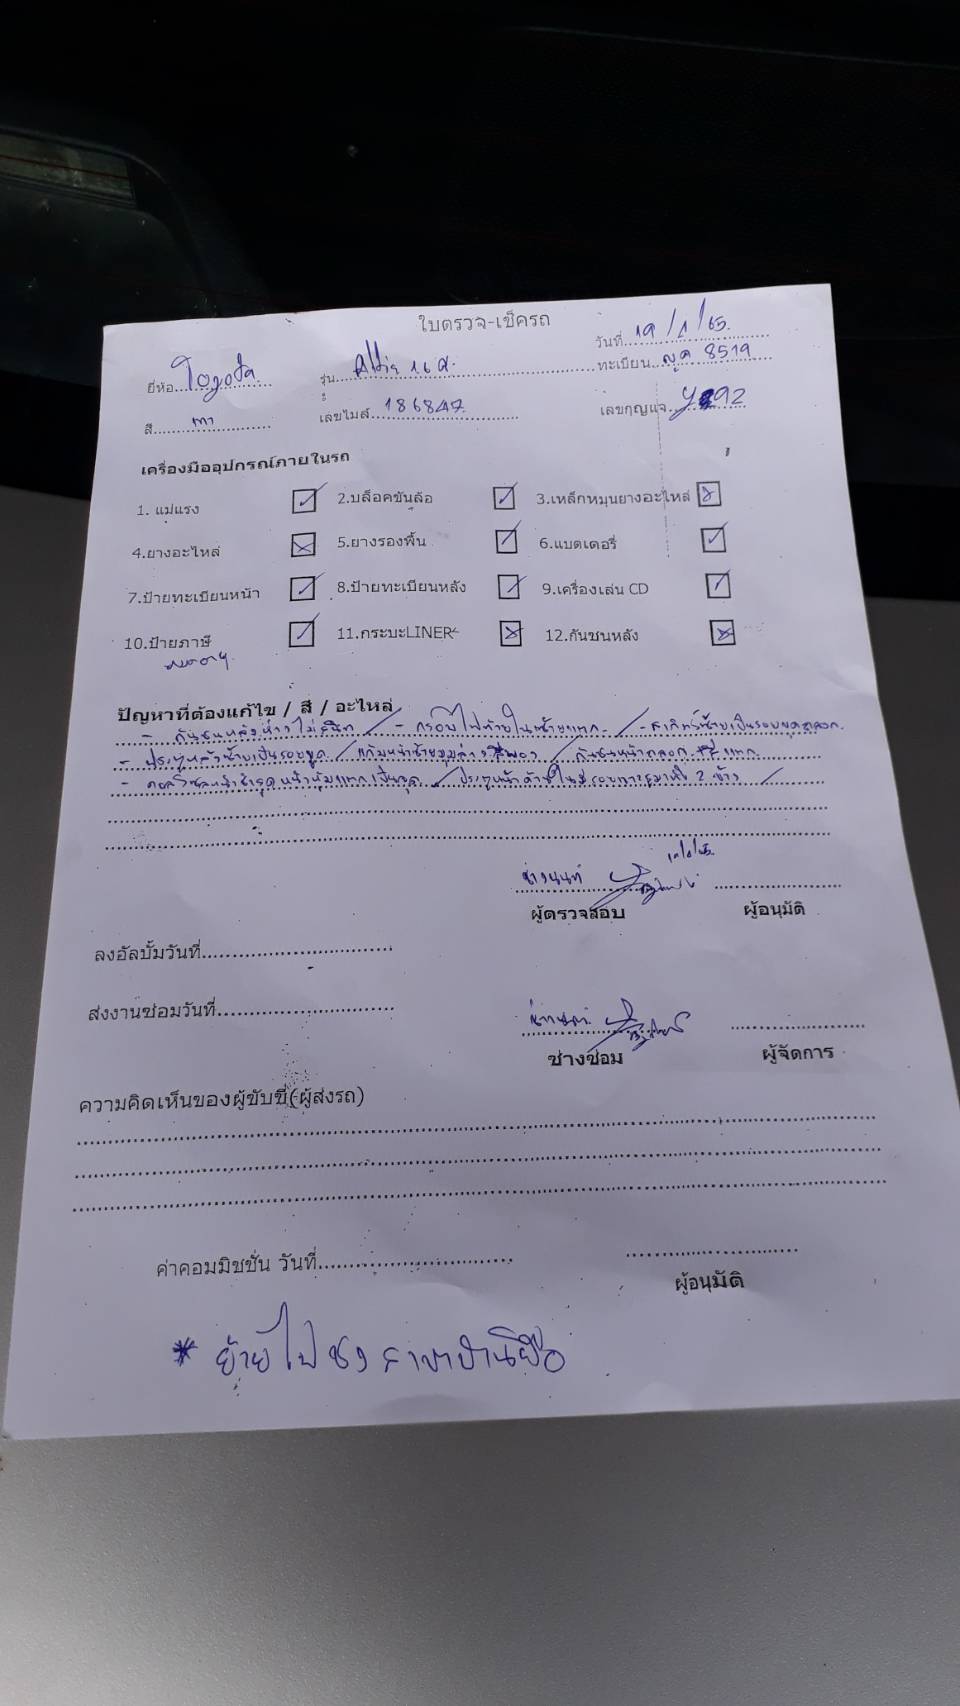 ใบตรวจ-เช็ครถ
วันที่ 19/1/65.
ยี่ห้อ Toyota รุ่น Altis 16 ทะเบียน 8519
สี เทา เลขไมล์ 186847 เลขกุญแจ
เครื่องมืออุปกรณ์ภายในรถ
1. แม่แรง 2.บล็อคขันล้อ 3.เหล็กหมุนยางอะไหล่
4.ยางอะไหล่ 5.ยางรองพื้น 6.แบตเตอรี่
7.ป้ายทะเบียนหน้า 8.ป้ายทะเบียนหลัง 9.เครื่องเล่น CD
10.ป้ายภาษี 11.กระบะLINER 12.กันชนหลัง
ปัญหาที่ต้องแก้ไข / สี / อะไหล่
- กันชนหลังห่างไม่สนิท / - กรอบไฟท้ายในซ้ายแตก / - สเกิร์ตซ้ายเป็นรอยขูดถลอก.
- ประตูหลังซ้ายเป็นรอยขูด / แก้มหน้าซ้ายมุมล่างสีพอง / กันชนหน้าถลอก สีแตก
- คอลโซลหน้าชำรุด หน้าหุ้มแตกเป็นจุด / ประตูหน้าด้านในมีรอยเจาะรูมาทั้ง 2 ข้าง /
ช่างนนท์
ผู้ตรวจสอบ ผู้อนุมัติ
ลงอัลบั้มวันที่
ส่งงานซ่อมวันที่
ช่างซ่อม ผู้จัดการ
ความคิดเห็นของผู้ขับขี่(ผู้ส่งรถ)
ค่าคอมมิชชั่น วันที่
ผู้อนุมัติ
* ย้ายไปยัง สาขาบ้านบึง